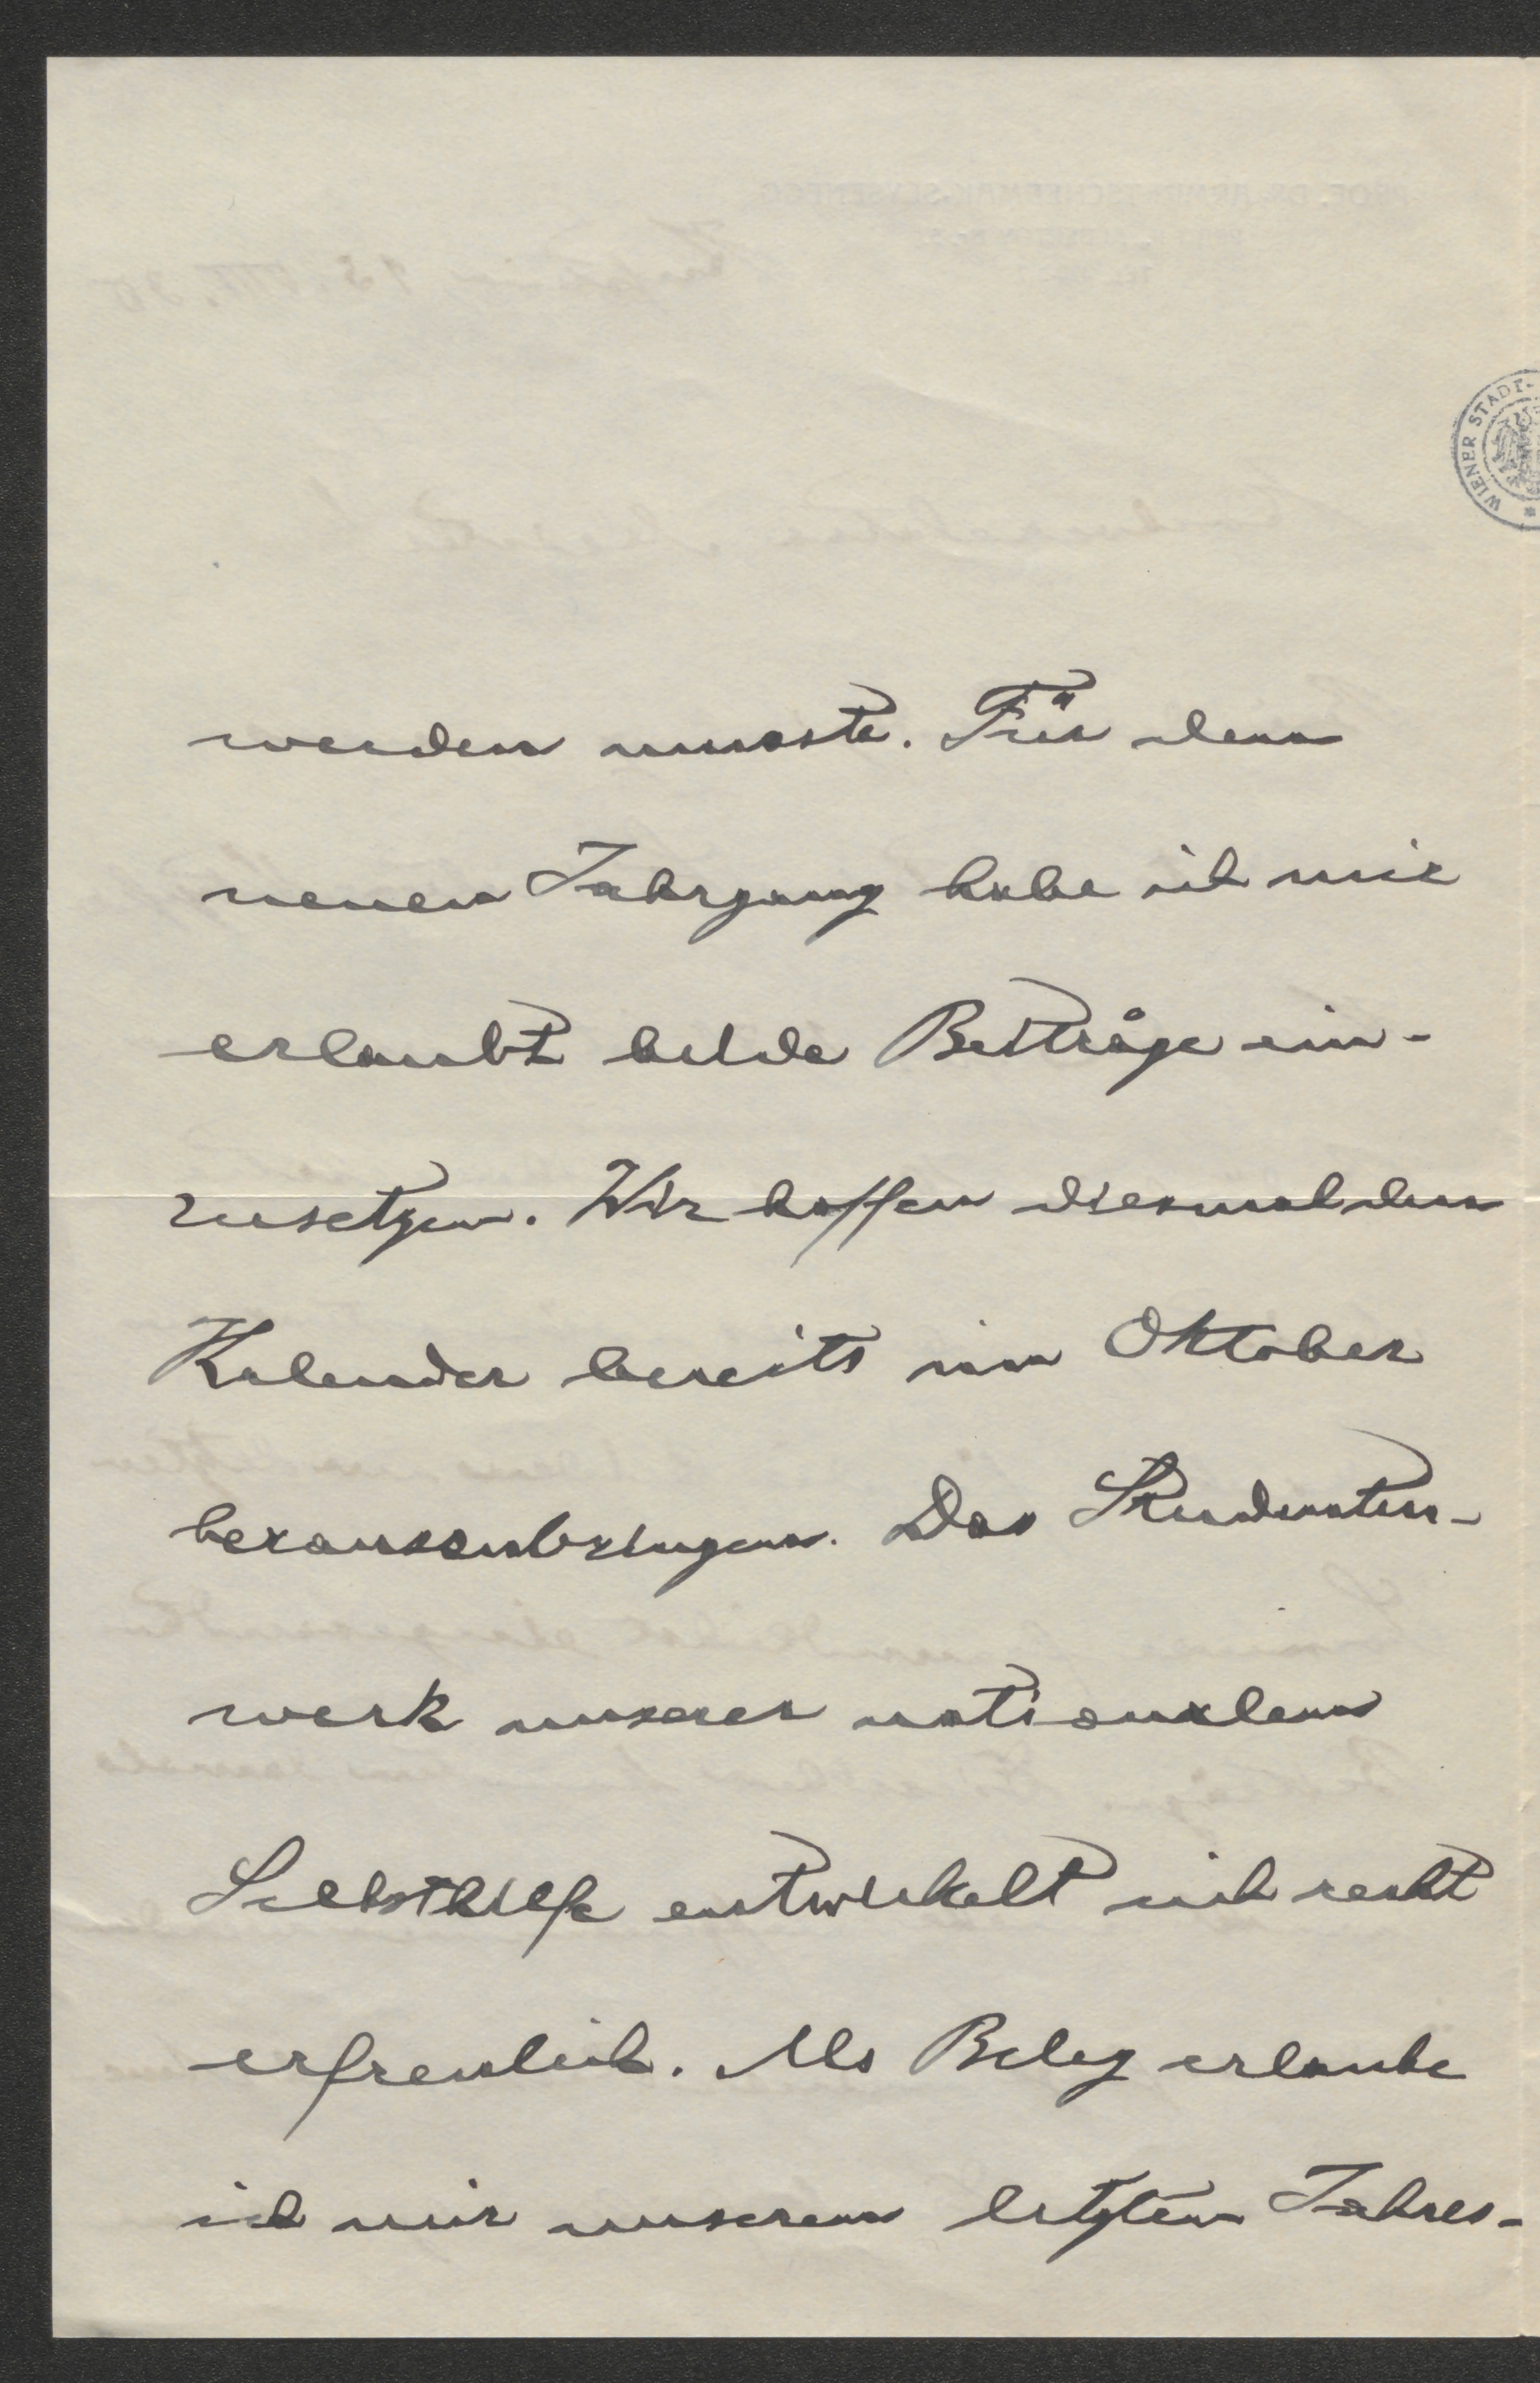 werden musste. Für den
neuen Jahrgang habe ich mir
erlaubt beide Beiträge ein-
zusetzen. Wir hoffen diesmal den
Kalender bereits im Oktober
herauszubringen. Das Studenten-
werk unserer nationalen
Selbsthilfe entwickelt sich recht
erfreulich. Als Beleg erlaube
ich mir unseren letzten Jahres-
WIENER STADT-